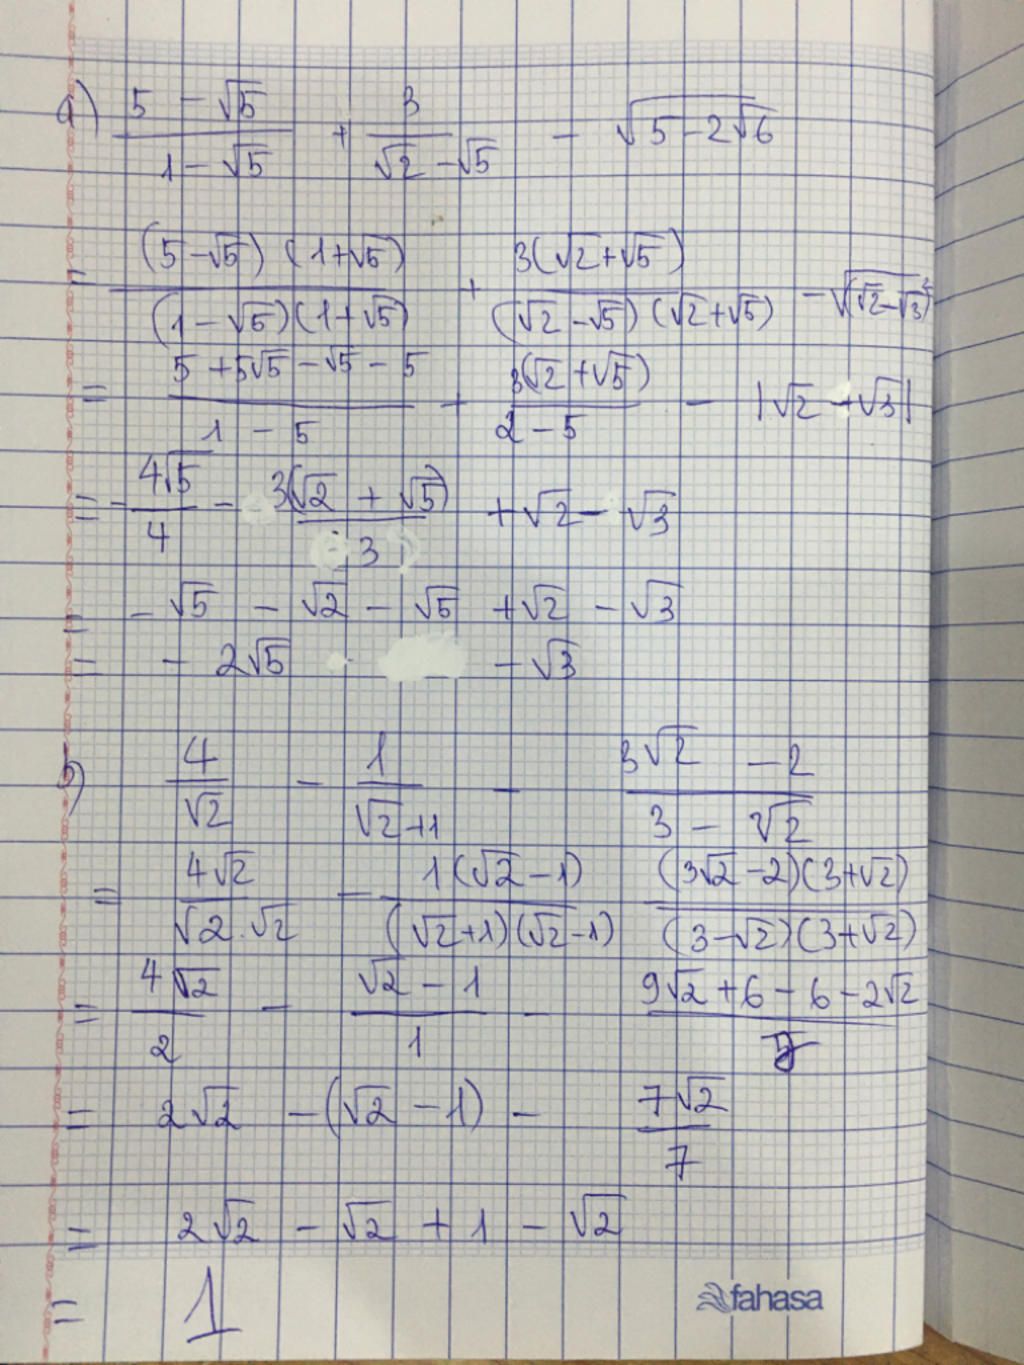 a) (5 - √5)/(1 - √5) + 3/(√2 - √5) - √(5 - 2√6)
= (5 - √5)(1 + √5)/(1 - √5)(1 + √5) + 3(√2 + √5)/(√2 - √5)(√2 + √5) - √(√2 - √3)²
= (5 + 5√5 - √5 - 5)/(1 - 5) + 3(√2 + √5)/(2 - 5) - |√2 - √3|
= - 4√5/4 - 3(√2 + √5)/3 + √2 - √3
= - √5 - √2 - √5 + √2 - √3
= - 2√5 - √3
b) 4/√2 - 1/(√2 + 1) - (3√2 - 2)/(3 - √2)
= 4√2/(√2.√2) - 1(√2 - 1)/(√2 + 1)(√2 - 1) (3√2 - 2)(3 + √2)/(3 - √2)(3 + √2)
= 4√2/2 - (√2 - 1)/1 - (9√2 + 6 - 6 - 2√2)/7
= 2√2 - (√2 - 1) - 7√2/7
= 2√2 - √2 + 1 - √2
= 1
fahasa